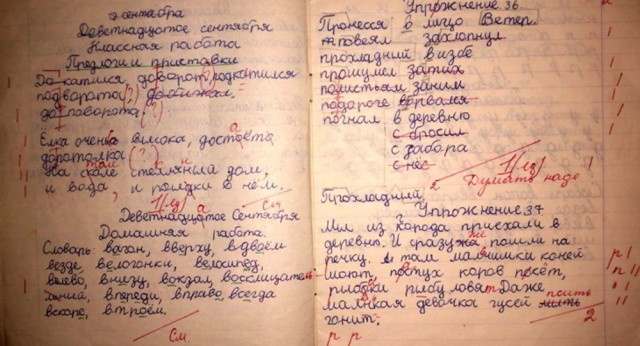 сентября
Деветнадцатое сентября
Классная работа
Предлоги и приставки
Докатился доворот подкатился
подворота(?)
до поворота(?)
Ёлка очень высока, достоёта
дополотолка(?)
На скале стеклянный дом,
и вода, и в нём.
Деветнадцатое Сентября
Домашняя работа.
Словарь: вагон, вверху, вдвоём
везде, велогонки, велосипед,
влево, внизу, вокзал, восклицатель-
ный, впереди, вправо, всегда
вскоре, втроём.
См.
Упрожнение 36.
Пронесся в лицо Ветер.
повеял захлопнул
прохладный
прошумел затих
поместьям заним
подароге ворвался
погнал в деревню
с бросил
с забора
с нёс
Думать надо!
2
Прохладный
Упрожнение 37
Мы из города приехали в
деревню. И сразу же пошли на
речку. А там мальчики коней
поют, постух коров посёт,
рыбаки рыбу ловят. Даже
маленькая девочка гусей поить
гонит.
2
р р